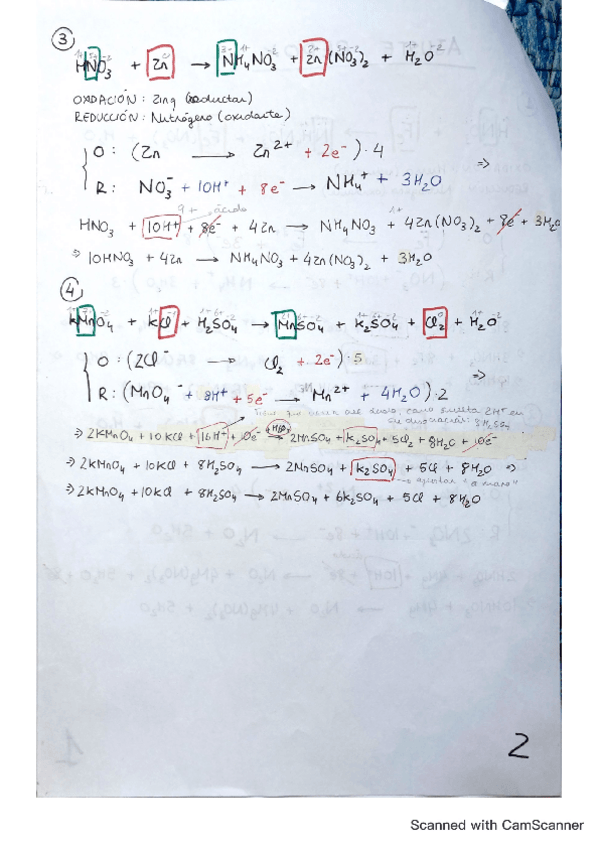 ③ HNO₃ + Zn → NH₄NO₃ + Zn(NO₃)₂ + H₂O
OXIDACIÓN: Zinq (reductor)
REDUCCIÓN: Nitrógeno (oxidante)
O: (Zn → Zn²⁺ + 2e⁻)·4 ⇒
R: NO₃⁻ + 10H⁺ + 8e⁻ → NH₄⁺ + 3H₂O
9 + ácido
HNO₃ + 10H⁺ + 8e⁻ + 4Zn → NH₄NO₃ + 4Zn(NO₃)₂ + 8e⁻ + 3H₂O
⇒ 10HNO₃ + 4Zn → NH₄NO₃ + 4Zn(NO₃)₂ + 3H₂O
④
KMnO₄ + KCl + H₂SO₄ → MnSO₄ + K₂SO₄ + Cl₂ + H₂O
O: (2Cl⁻ → Cl₂ + 2e⁻)·5 ⇒
R: (MnO₄⁻ + 8H⁺ + 5e⁻ → Mn²⁺ + 4H₂O)·2
Tiene que venir del ácido, como suelta 2H⁺ en
su disociación: 8H₂SO₄
⇒ 2KMnO₄ + 10KCl + 16H⁺ + 10e⁻ → 2MnSO₄ + K₂SO₄ + 5Cl₂ + 8H₂O + 10e⁻
⇒ 2KMnO₄ + 10KCl + 8H₂SO₄ → 2MnSO₄ + K₂SO₄ + 5Cl + 8H₂O ⇒
→ ajustar "a mano"
⇒ 2KMnO₄ + 10KCl + 8H₂SO₄ → 2MnSO₄ + 6K₂SO₄ + 5Cl + 8H₂O
2
Scanned with CamScanner